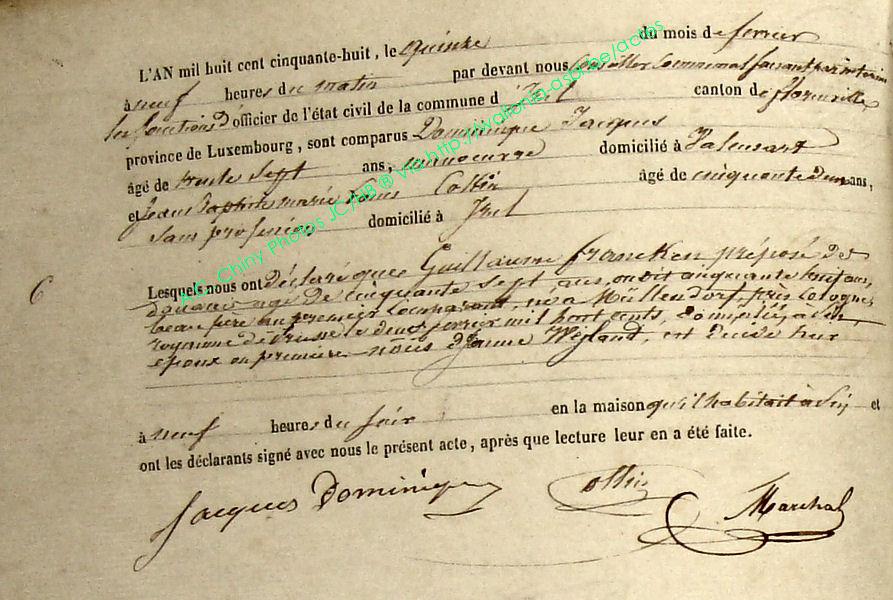 L'AN mil huit cent cinquante-huit, le quinze du mois de fevrier
à neuf heures du matin par devant nous Conseiller Communal faisant par interim
les fonctions d'officier de l'état civil de la commune d'Izel canton de florenville
province de Luxembourg, sont comparus Dominique Jacques
âgé de trente sept ans, manoeuvre domicilié à Valensart
et Jean Baptiste marie Louis Collin âgé de cinquante deux ans,
sans profession domicilié à Izel
Lesquels nous ont déclaré que Guillaume francken préposé de
douane agé de cinquante sept ans, on dit cinquante huit ans,
beau père du premier Comparant, né à Müllendorf, près Cologne,
royaume de Prusse le deux fevrier mil huit cents, domicilié à
époux en première nôces d'Anne Weyland, est décédé hier
à neuf heures du soir en la maison qu'il habitait à et
ont les déclarants signé avec nous le présent acte, après que lecture leur en a été faite.
Jacques Dominique Collin Marchal
C
A.C. Chiny Photos JC/MB ® Via http://lwaforna-asbl.be/actos